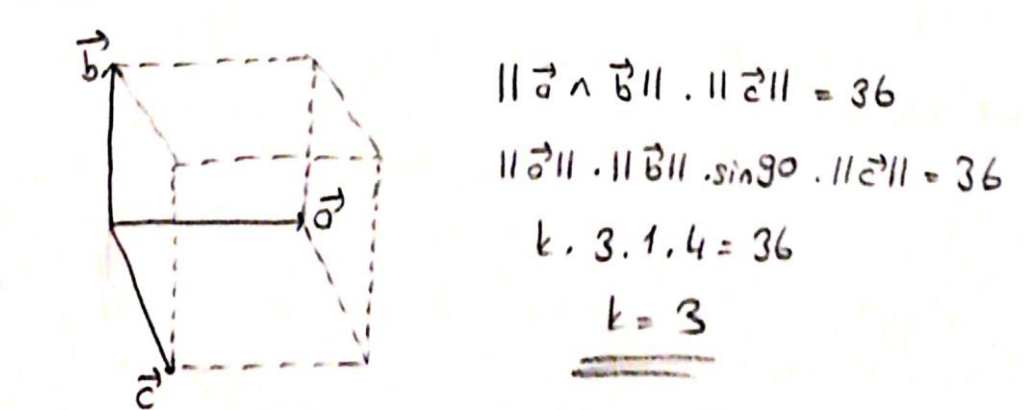 b⃗
a⃗
c⃗
||a⃗ ∧ b⃗|| . ||c⃗|| = 36
||a⃗|| . ||b⃗|| . sin90 . ||c⃗|| = 36
k . 3 . 1 . 4 = 36
k = 3